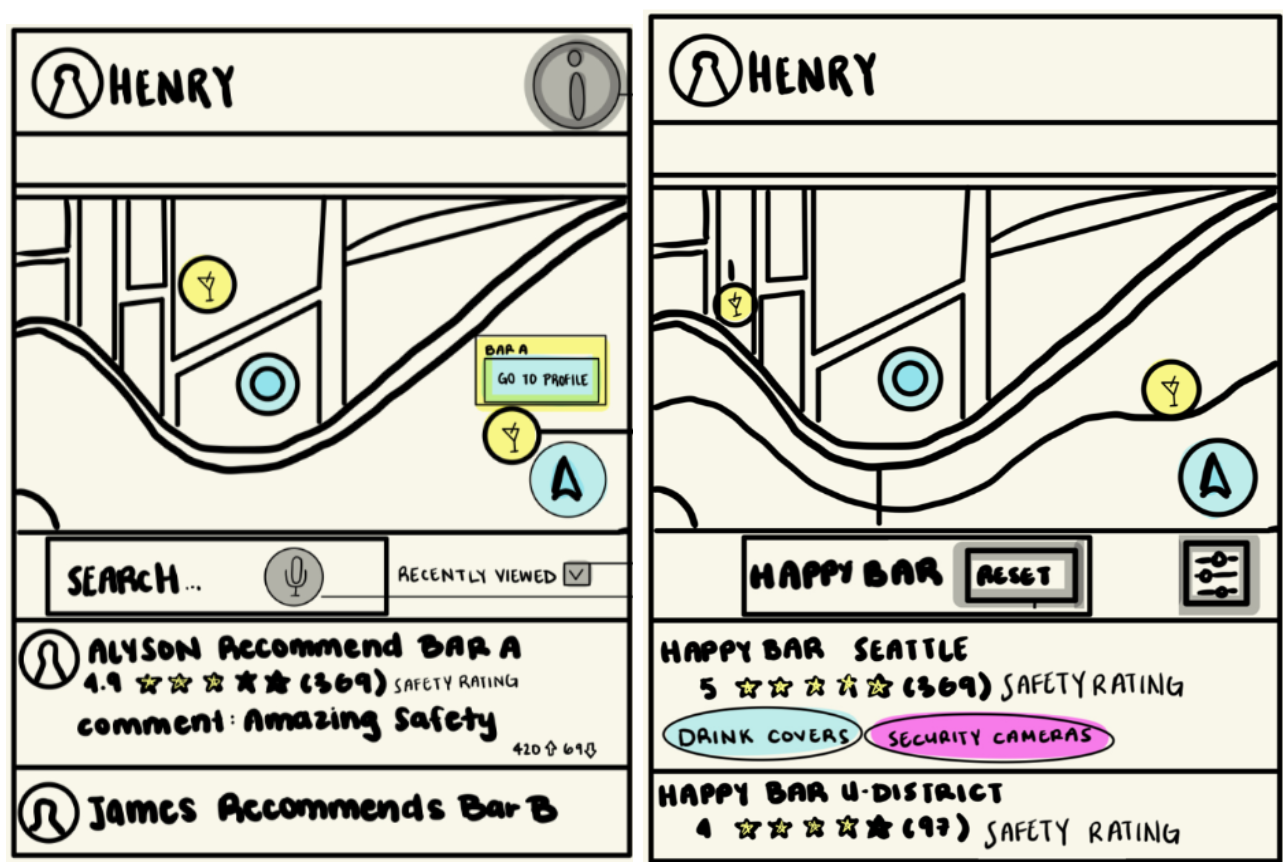 HENRY
i
BAR A
GO TO PROFILE
SEARCH...
RECENTLY VIEWED
ALYSON Recommend BAR A
4.9 (369) SAFETY RATING
comment: Amazing Safety
420 69
JAMES Recommends Bar B
HENRY
HAPPY BAR RESET
HAPPY BAR SEATTLE
5 (369) SAFETY RATING
DRINK COVERS SECURITY CAMERAS
HAPPY BAR U-DISTRICT
4 (97) SAFETY RATING